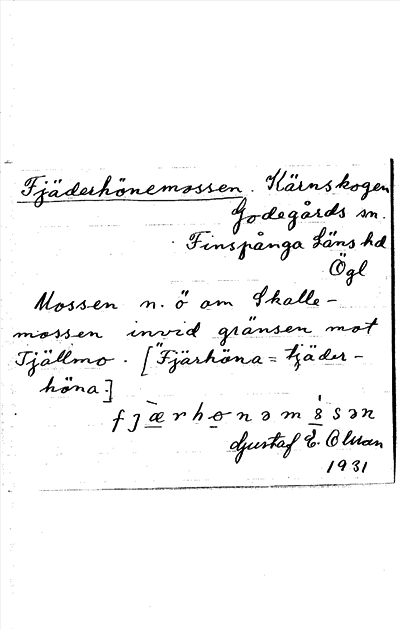 Fjäderhönemossen. Kärnskogen
Godegårds sn.
Finspånga Läns hd
Ögl
Mossen n. ö om Skalle-
mossen invid gränsen mot
Tjällmo. ["Fjärhöna = tjäder-
höna.]
Gustaf E. Olsson
1931